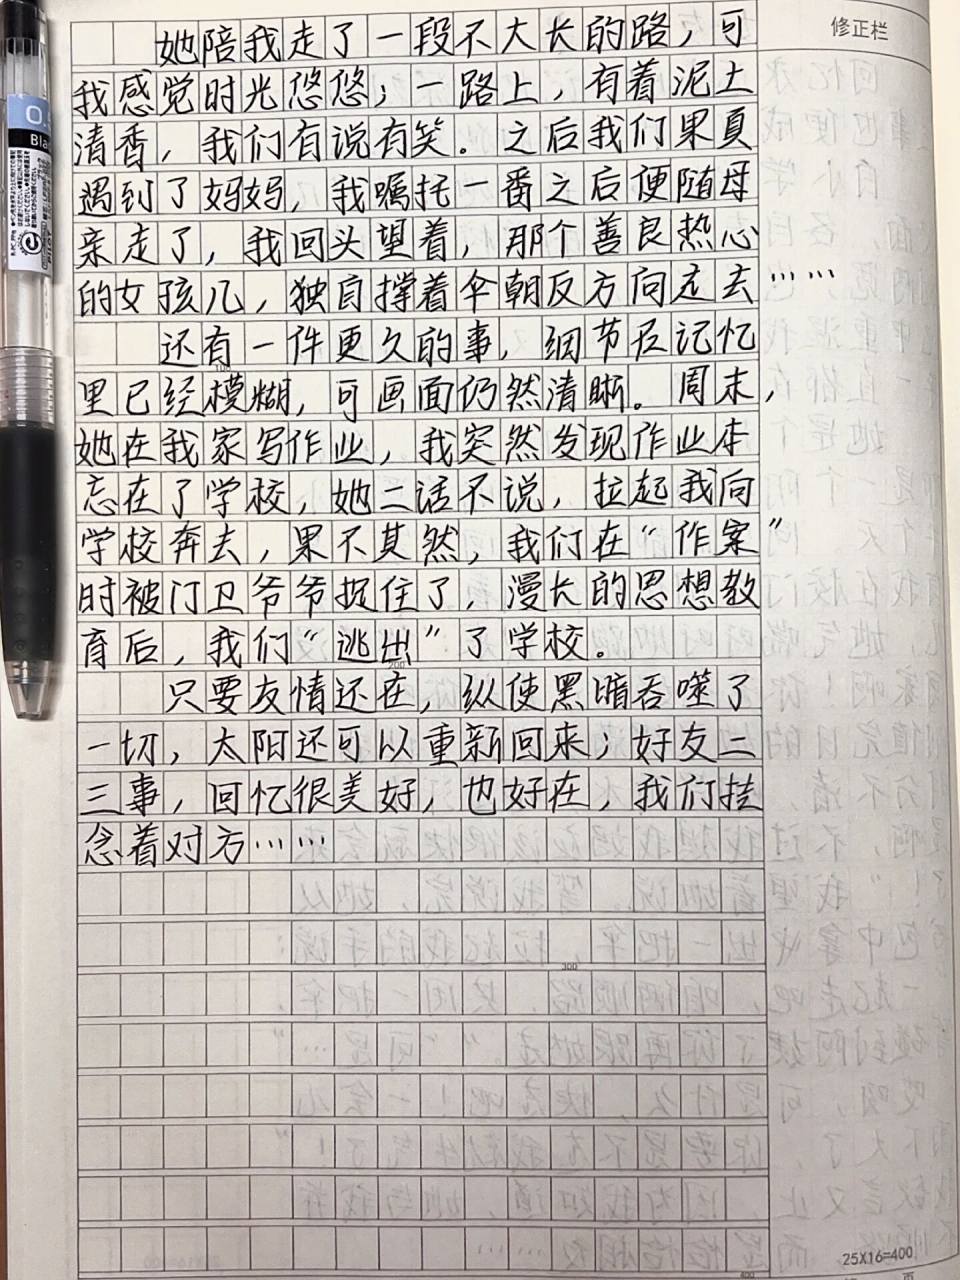 修正栏
她陪我走了一段不大长的路，可
我感觉时光悠悠；一路上，有着泥土
清香，我们有说有笑。之后我们果真
遇到了妈妈，我嘱托一番之后便随母
亲走了，我回头望着，那个善良热心
的女孩儿，独自撑着伞朝反方向走去……
还有一件更久的事，细节反记忆
里已经模糊，可画面仍然清晰。周末，
她在我家写作业，我突然发现作业本
忘在了学校，她二话不说，拉起我向
学校奔去，果不其然，我们在“作案”
时被门卫爷爷捉住了，漫长的思想教
育后，我们“逃出”了学校。
只要友情还在，纵使黑暗吞噬了
一切，太阳还可以重新回来；好友二
三事，回忆很美好，也好在，我们挂
念着对方……
100
200
300
400
25X16=400
0.5
Bla